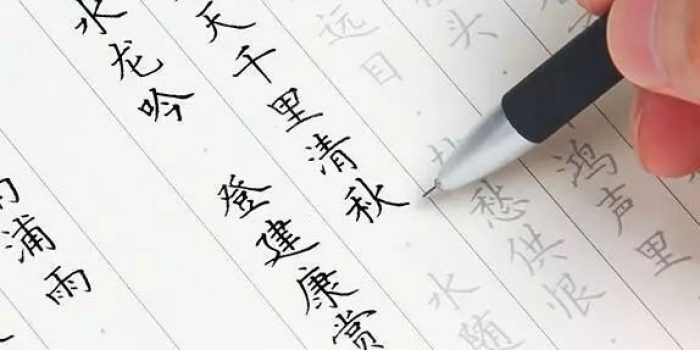 浦雨
水龙吟 登建康赏
天千里清秋 水随
远目 愁供恨
头 鸿声里